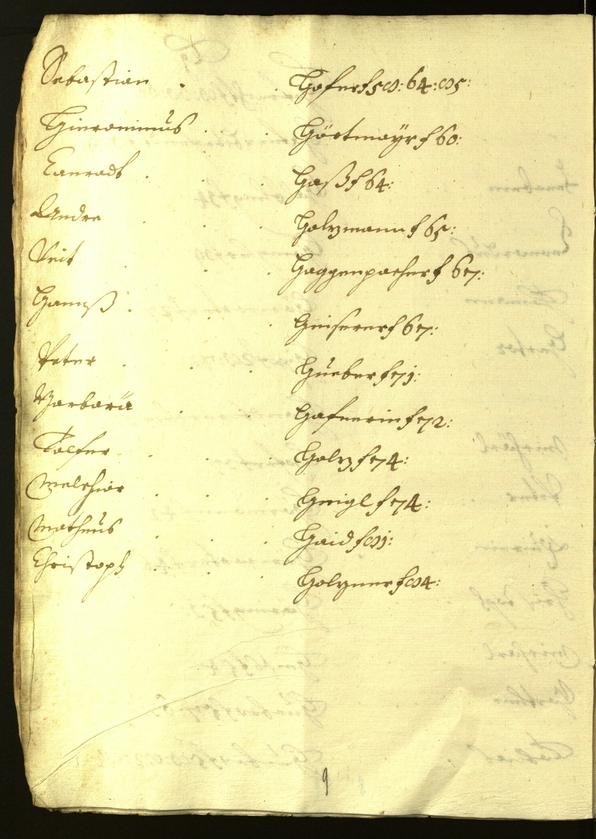 Sebastian . . Hofer f 58: 64: 85:
Hieronimus . . Hörtmayr f 60:
Conradt . . Haß f 64:
Andre . . Holzmann f 65:
Veit . . Haggenpacher f 67:
Hannß . . f 67:
Peter . . Hueber f 71:
Barbara . . Hafnerin f 72:
. . Holz f 74:
Melchior . . Heigl f 74:
Matheus . . Haid f 81:
Christoph . . Holzner f 84:
9